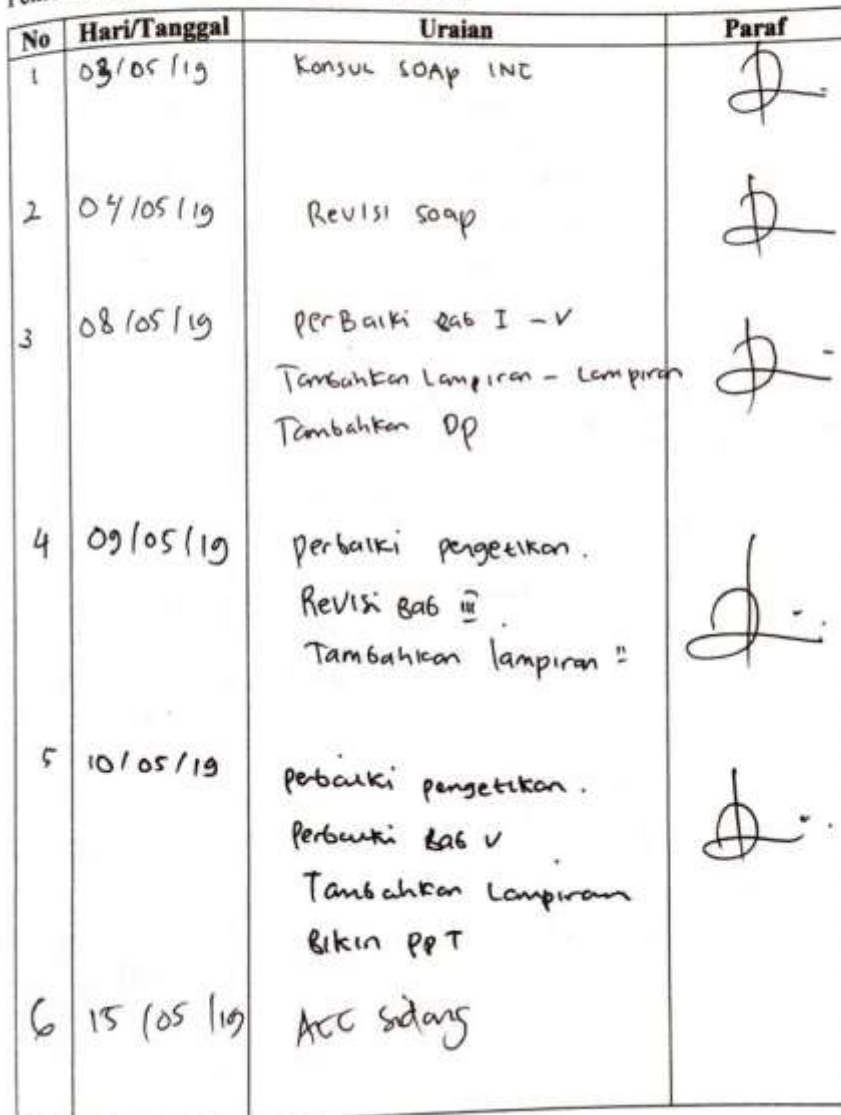 No Hari/Tanggal Uraian Paraf
1 03/05/19 Konsul SOAP INC
2 04/05/19 Revisi soap
3 08/05/19 perbaiki Bab I - V
Tambahkan Lampiran - Lampiran
Tambahkan Dp
4 09/05/19 perbaiki pengetikan.
Revisi Bab III.
Tambahkan lampiran "
5 10/05/19 perbaiki pengetikan.
Perbaiki Bab V
Tambahkan Lampiran
Bikin PPT
6 15/05/19 ACC sidang